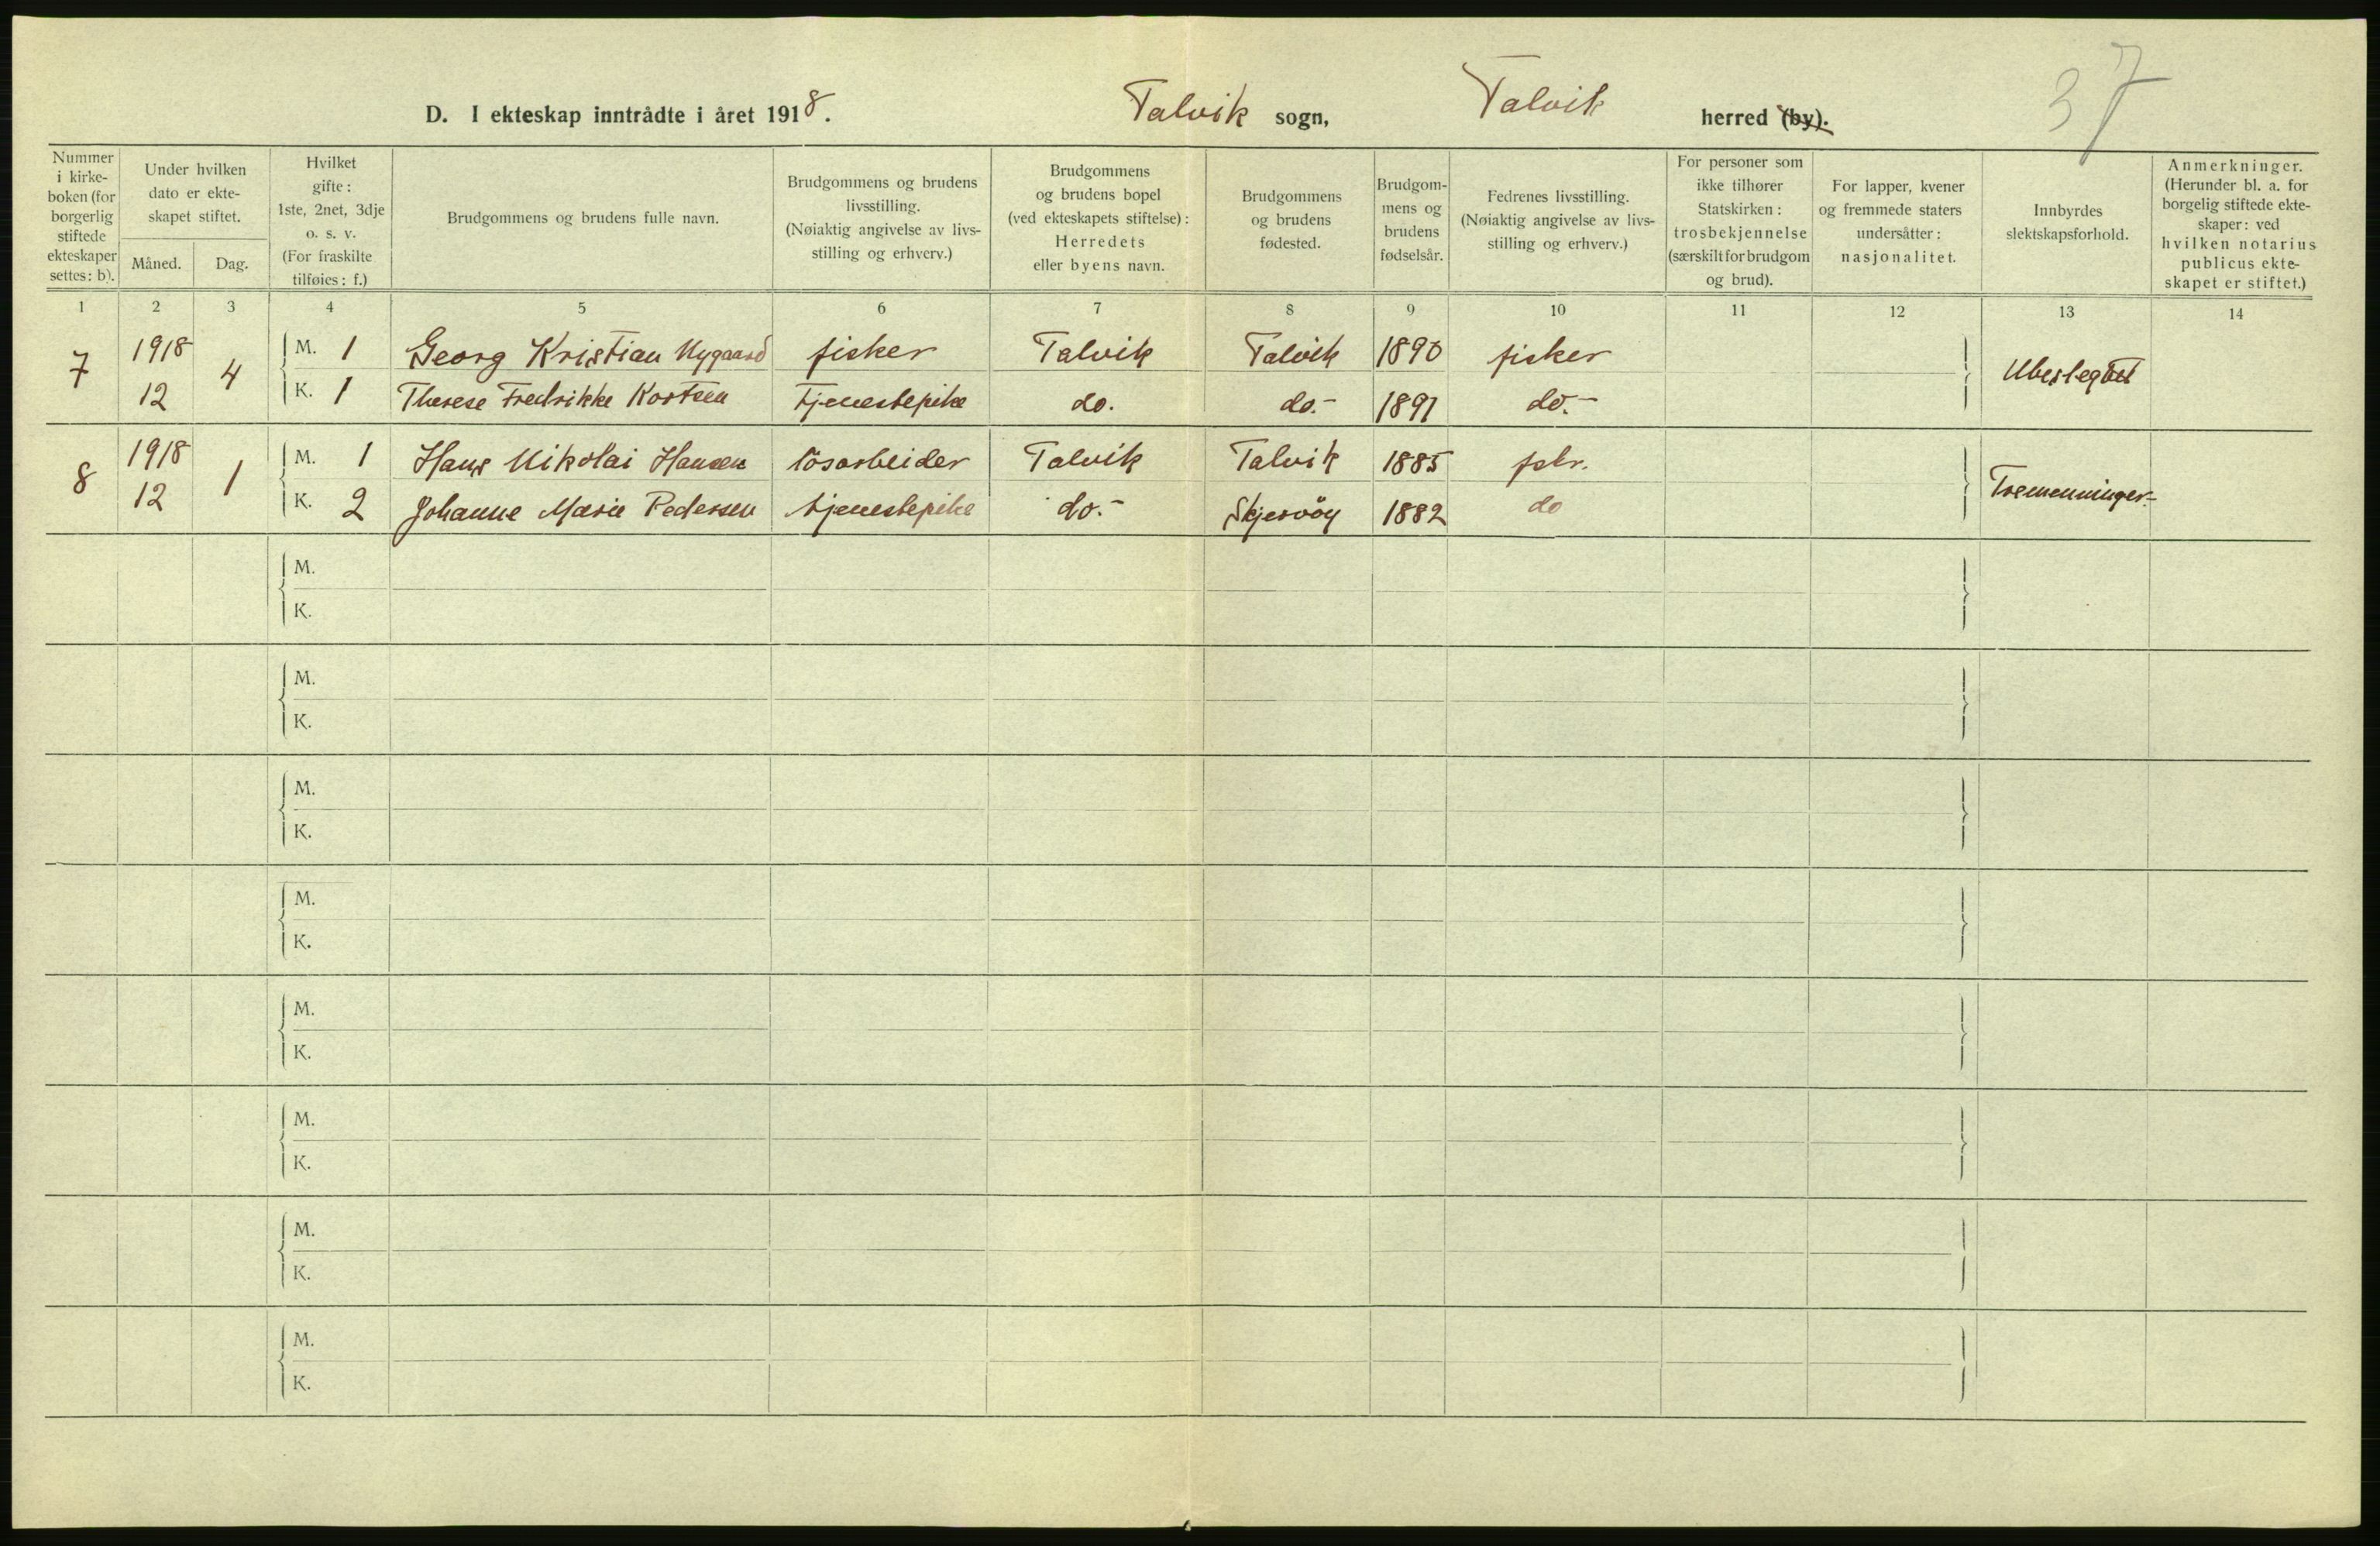 37
D. I ekteskap inntrådte i året 1918. Talvik sogn, Talvik herred (by).
Nummer i kirke-boken (for borgerlig stiftede ekteskaper settes: b).
Under hvilken dato er ekte-skapet stiftet.
Måned. Dag.
Hvilket gifte: 1ste, 2net, 3dje o. s. v. (For fraskilte tilføies: f.)
Brudgommens og brudens fulle navn.
Brudgommens og brudens livsstilling. (Nøiaktig angivelse av livs-stilling og erhverv.)
Brudgommens og brudens bopel (ved ekteskapets stiftelse): Herredets eller byens navn.
Brudgommens og brudens fødested.
Brudgom-mens og brudens fødselsår.
Fedrenes livsstilling. (Nøiaktig angivelse av livs-stilling og erhverv.)
For personer som ikke tilhører Statskirken: trosbekjennelse (særskilt for brudgom og brud).
For lapper, kvener og fremmede staters undersåtter: nasjonalitet.
Innbyrdes slektskapsforhold.
Anmerkninger. (Herunder bl. a. for borgelig stiftede ekte-skaper: ved hvilken notarius publicus ekte-skapet er stiftet.)
1 2 3 4 5 6 7 8 9 10 11 12 13 14
7 1918 12 4 M. 1 Georg Kristian Nygaard fisker Talvik Talvik 1890 fisker Ubeslegtet
K. 1 Therese Fredrikke Kortsen Tjenestepike do. do.- 1891 do.-
8 1918 12 1 M. 1 Hans Nikolai Hansen lösarbeider Talvik Talvik 1885 fskr. Tremenninger.-
K. 2 Johanne Marie Pedersen tjenestepike do.- Skjervöy 1882 do
M.
K.
M.
K.
M.
K.
M.
K.
M.
K.
M.
K.
M.
K.
M.
K.